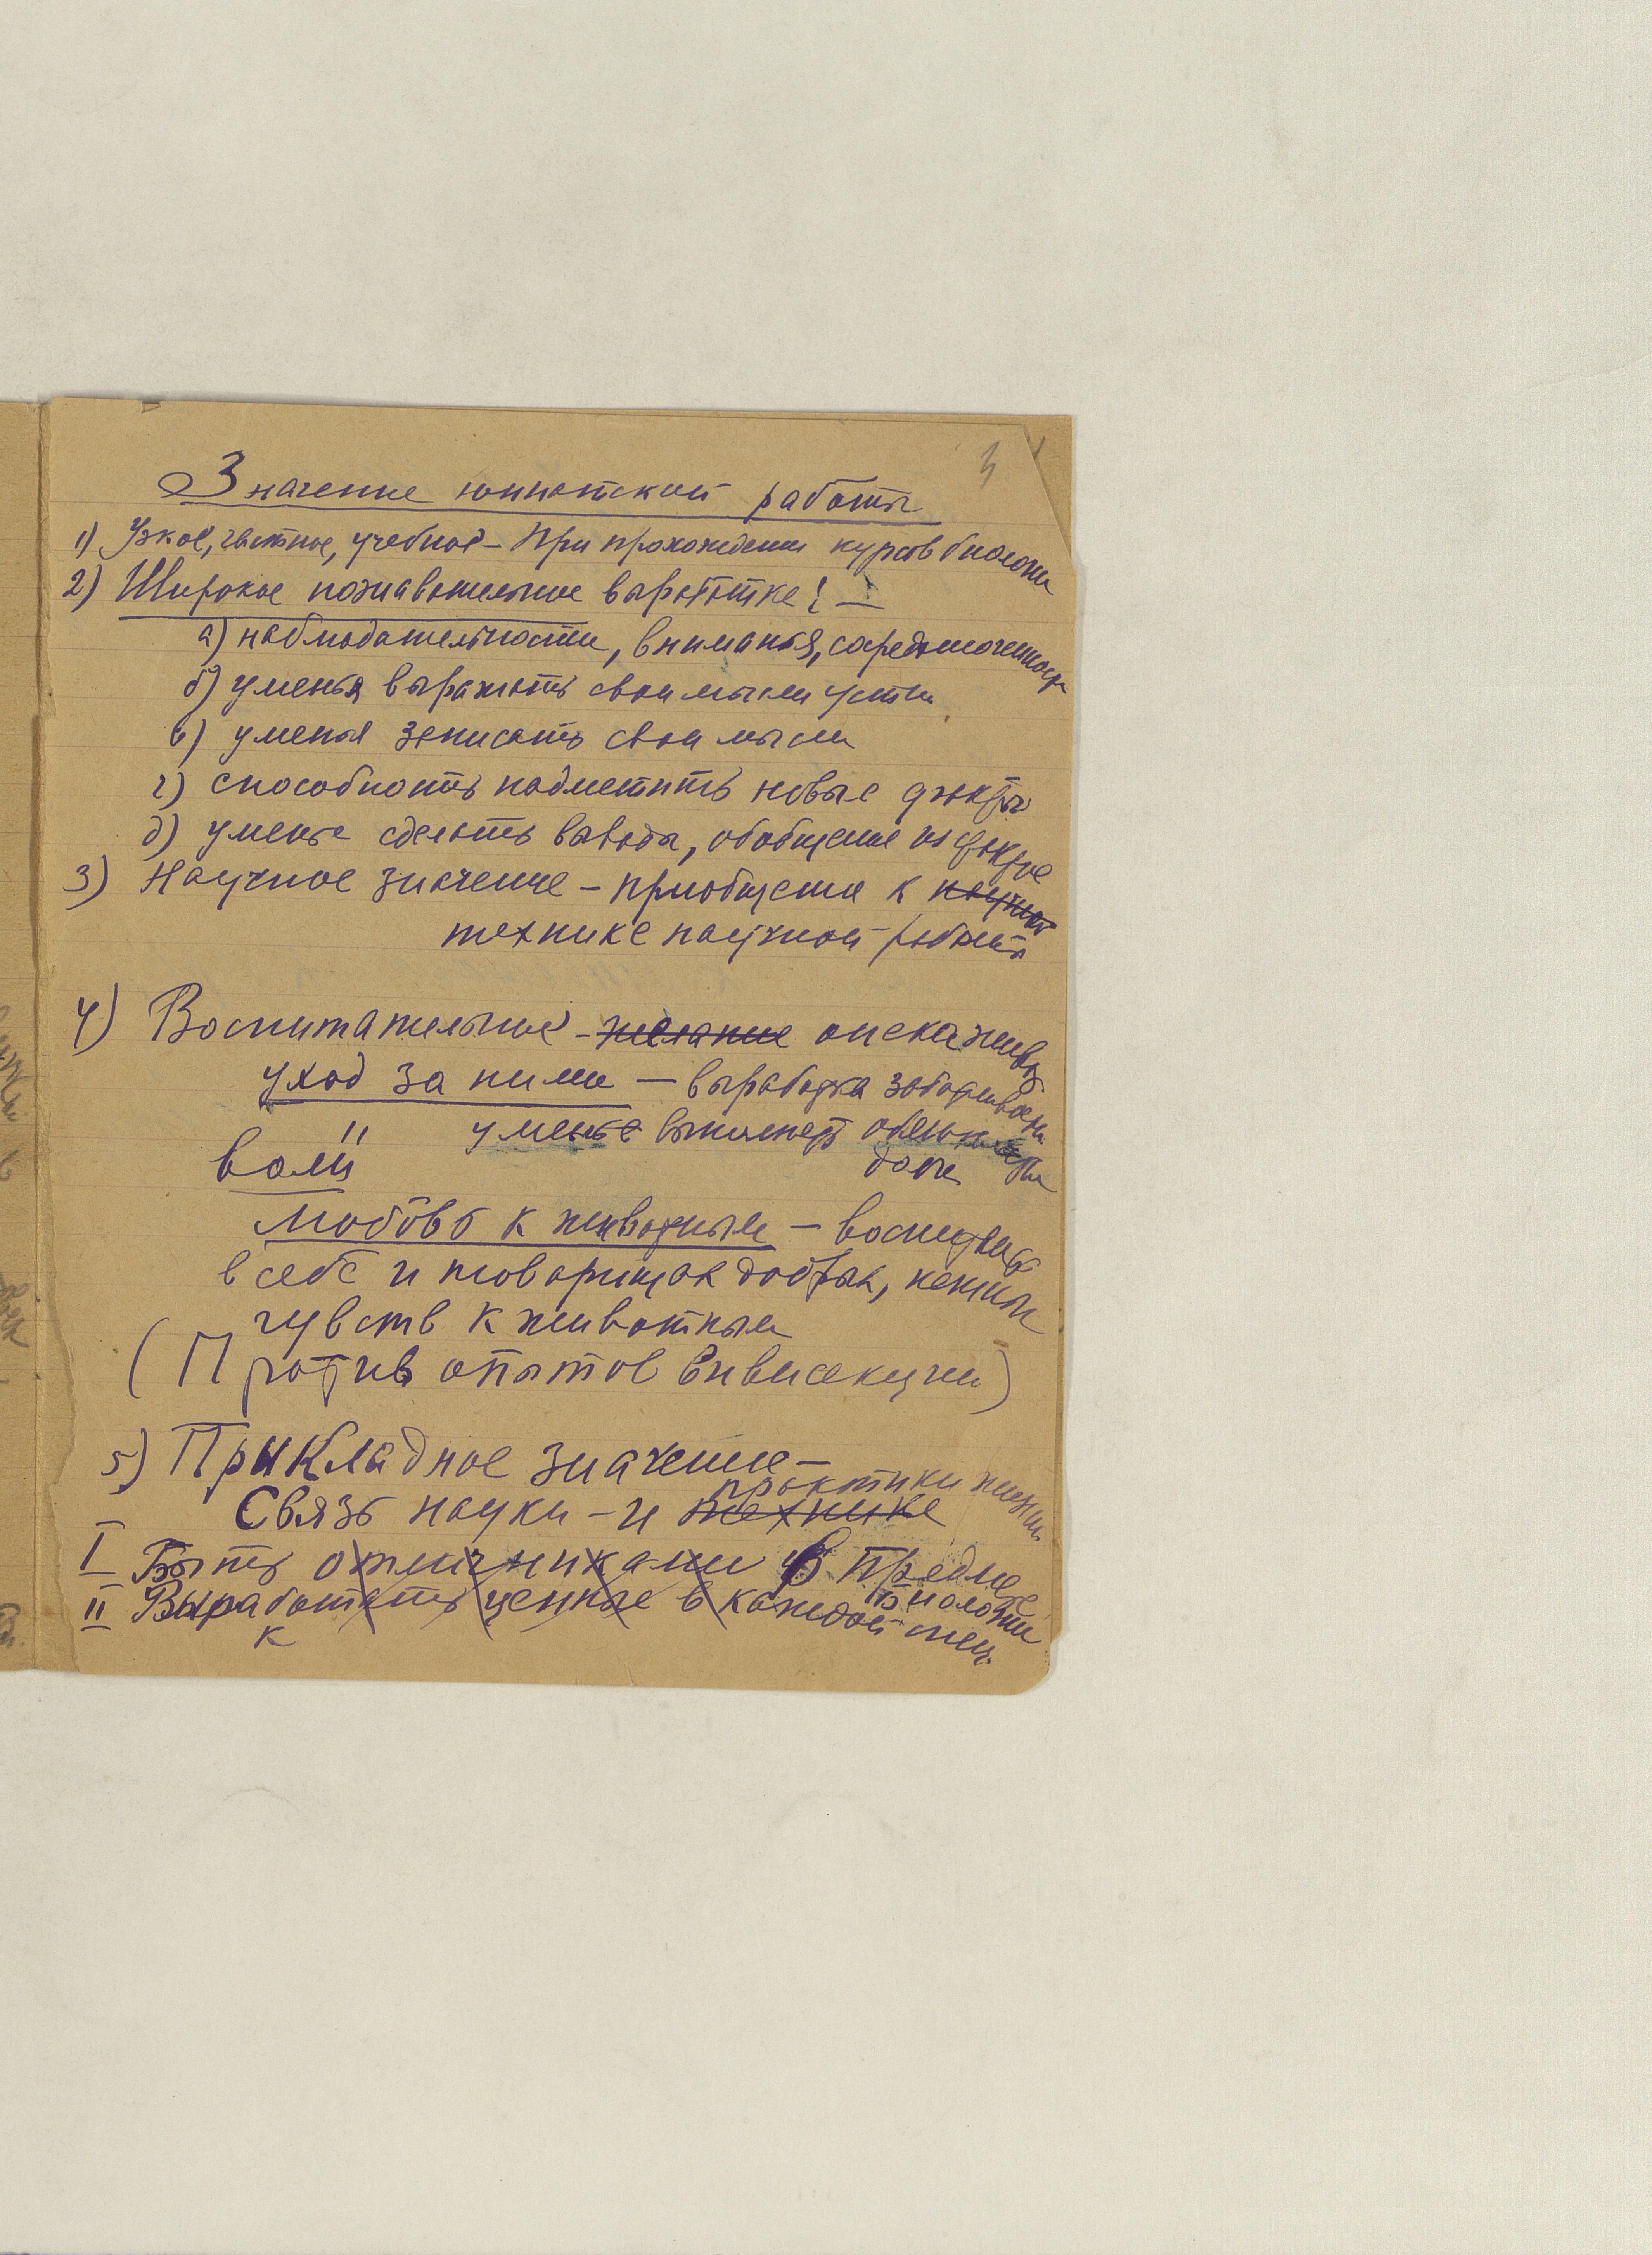 Значение юннатской работы
1) Узкое, частное, учебное – При прохождении курсов биологии
2) Широкое познавательное выработке: –
а) наблюдательности, внимания, сосредоточенности
б) уменья выражать свои мысли устно
в) уменья записать свои мысли
г) способность подметить новые факты
д) уменье сделать выводы, обобщение из фактов
3) Научное значение – приобщение к научной
технике научной работы
4) Воспитательное – желание опека живых
уход за ними – выработка заботливости
уменье выполнять
воли
любовь к животным – воспитание
в себе и товарищах добрых,
чувств к животным
(Против опытов вивисекции)
5) Прикладное значение –
практики жизни
Связь науки – и технике
I Быть отличниками в предмете
биологии
II Выработать ценные в каждой
к